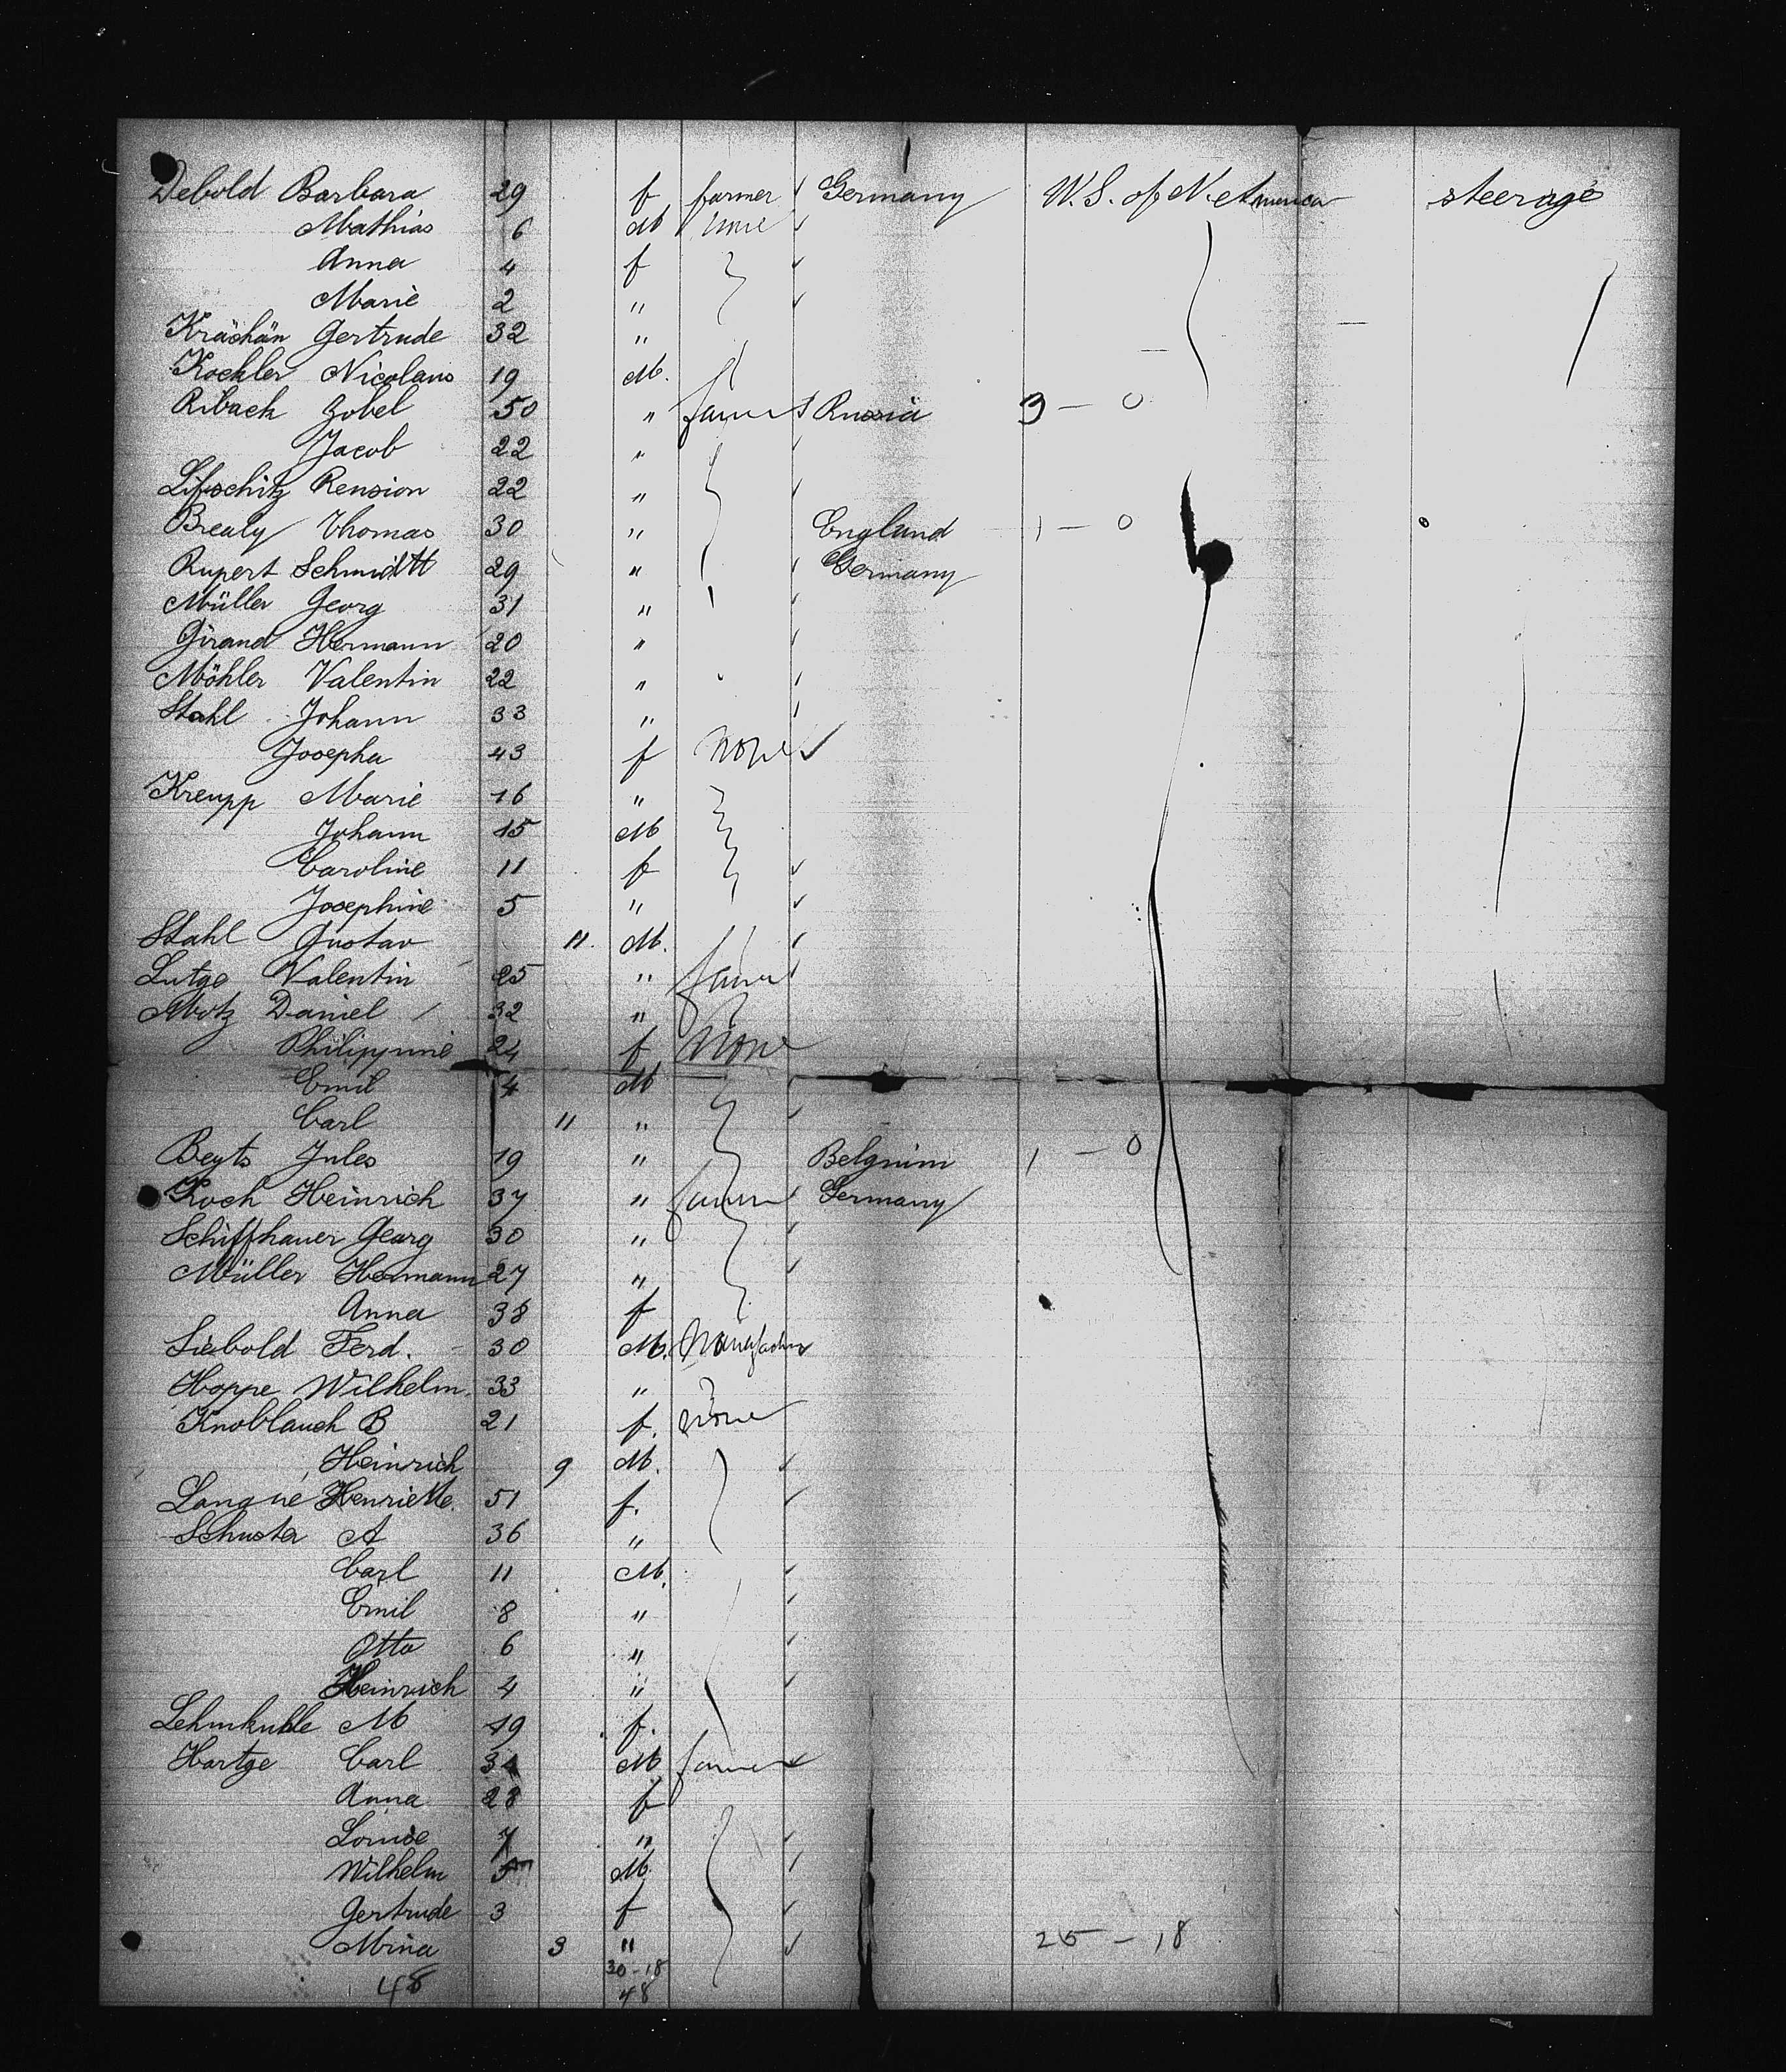 Debold Barbara 29 f farmer Germany W. S. of N. America steerage
Mathias 6 M none
Anna 4 f
Marie 2 "
Kräshän Gertrude 32 "
Kochler Nicolaus 19 M.
Riback Zobel 50 " farmer Russia 3 - 0
Jacob 22 "
Lifschitz Rension 22 "
Brealy Thomas 30 " England 1 - 0
Rupert Schmidtt 29 " Germany
Müller Georg 31 "
Girand Hermann 20 "
Möhler Valentin 22 "
Stahl Johann 33 "
Josepha 43 f none
Kreupp Marie 16 "
Johann 15 M
Caroline 11 f
Josephine 5 "
Stahl Gustav 11. M.
Lutge Valentin 25 " farmer
Motz Daniel 32 "
Philippine 24 f none
Emil 4 M
Carl 11 "
Beyts Jules 19 " Belgium 1 - 0
Koch Heinrich 37 " farmer Germany
Schiffhauer Georg 30 "
Müller Hermann 27 "
Anna 38 f
Siebold Ferd. 30 M.
Hoppe Wilhelm. 33 "
Knoblauch B 21 f. none
Heinrich 9 M.
Langue Henriette. 51 f.
Schuster A 36 "
Carl 11 M.
Emil 8 "
Otto 6 "
Heinrich 4 "
Lehmkuhle M 19 f.
Hartge Carl 34 M farmer
Anna 28 f
Louise 7 "
Wilhelm 5 M.
Gertrude 3 f
Mina 3 " 25 - 18
30 - 18
48 48